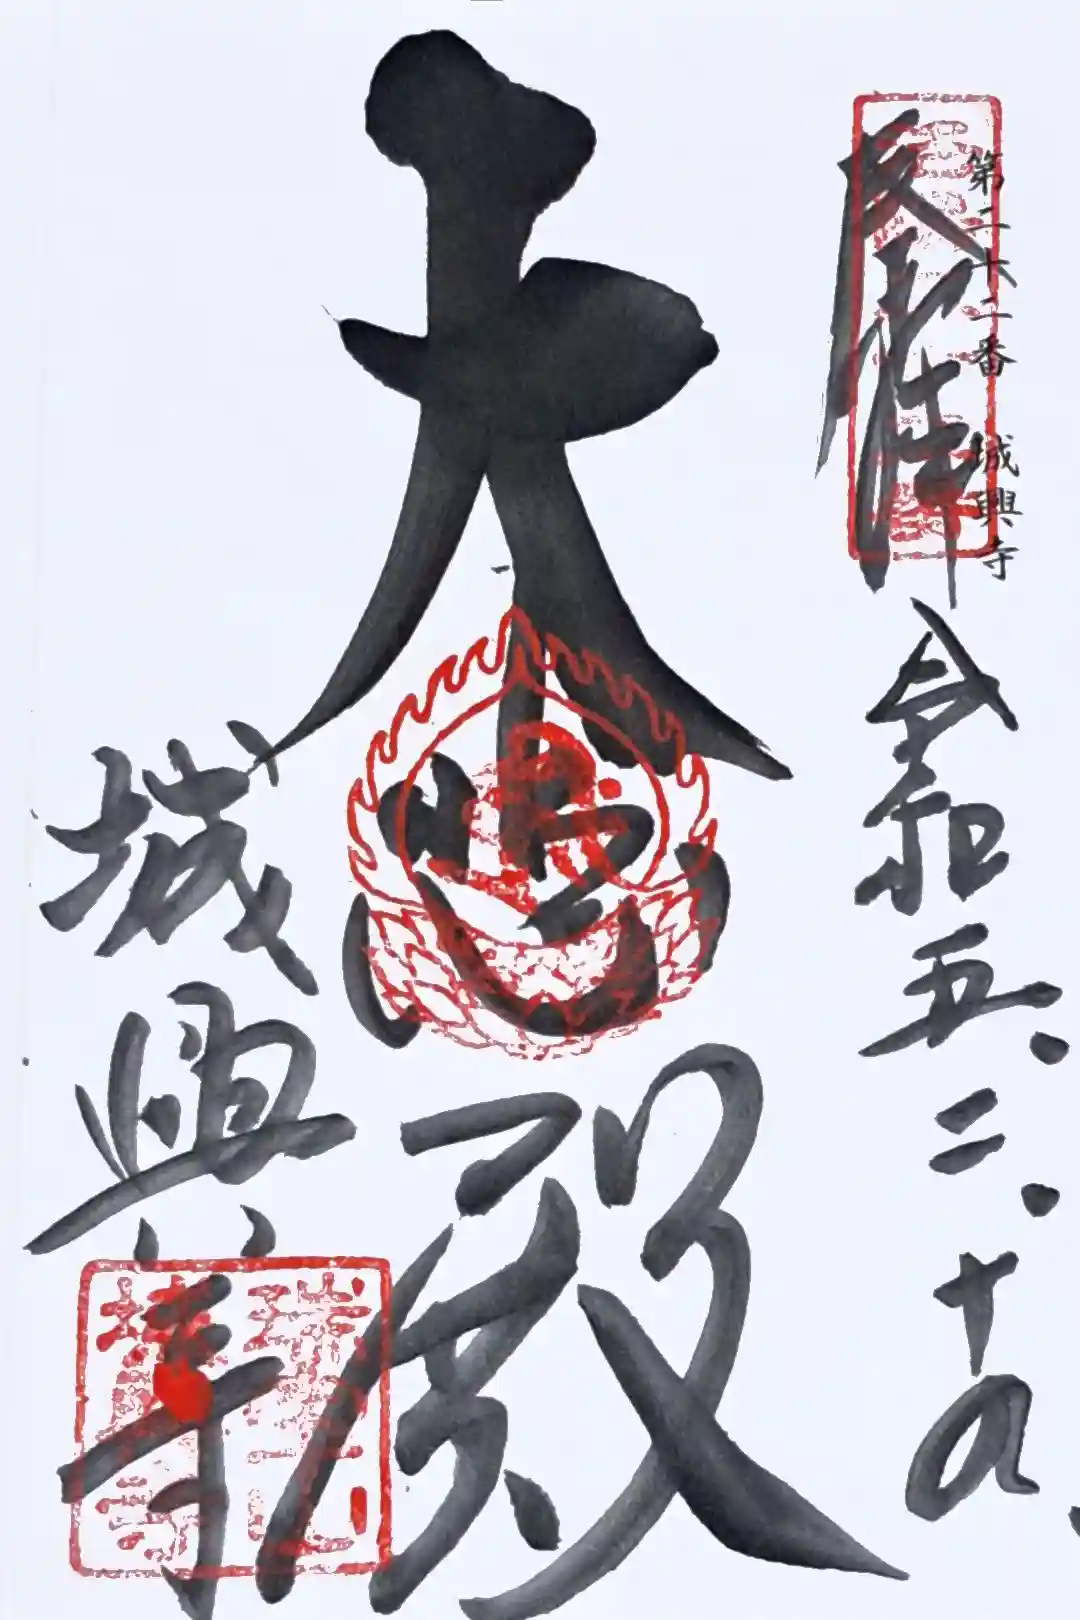 第二十二番 城興寺
奉拝
令和五、二、十九
大悲殿
城興寺